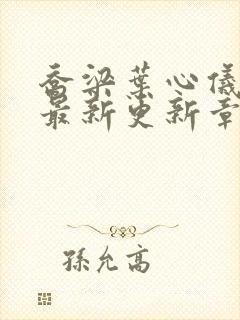 喬梁葉心儀
最新更新章
孫允高